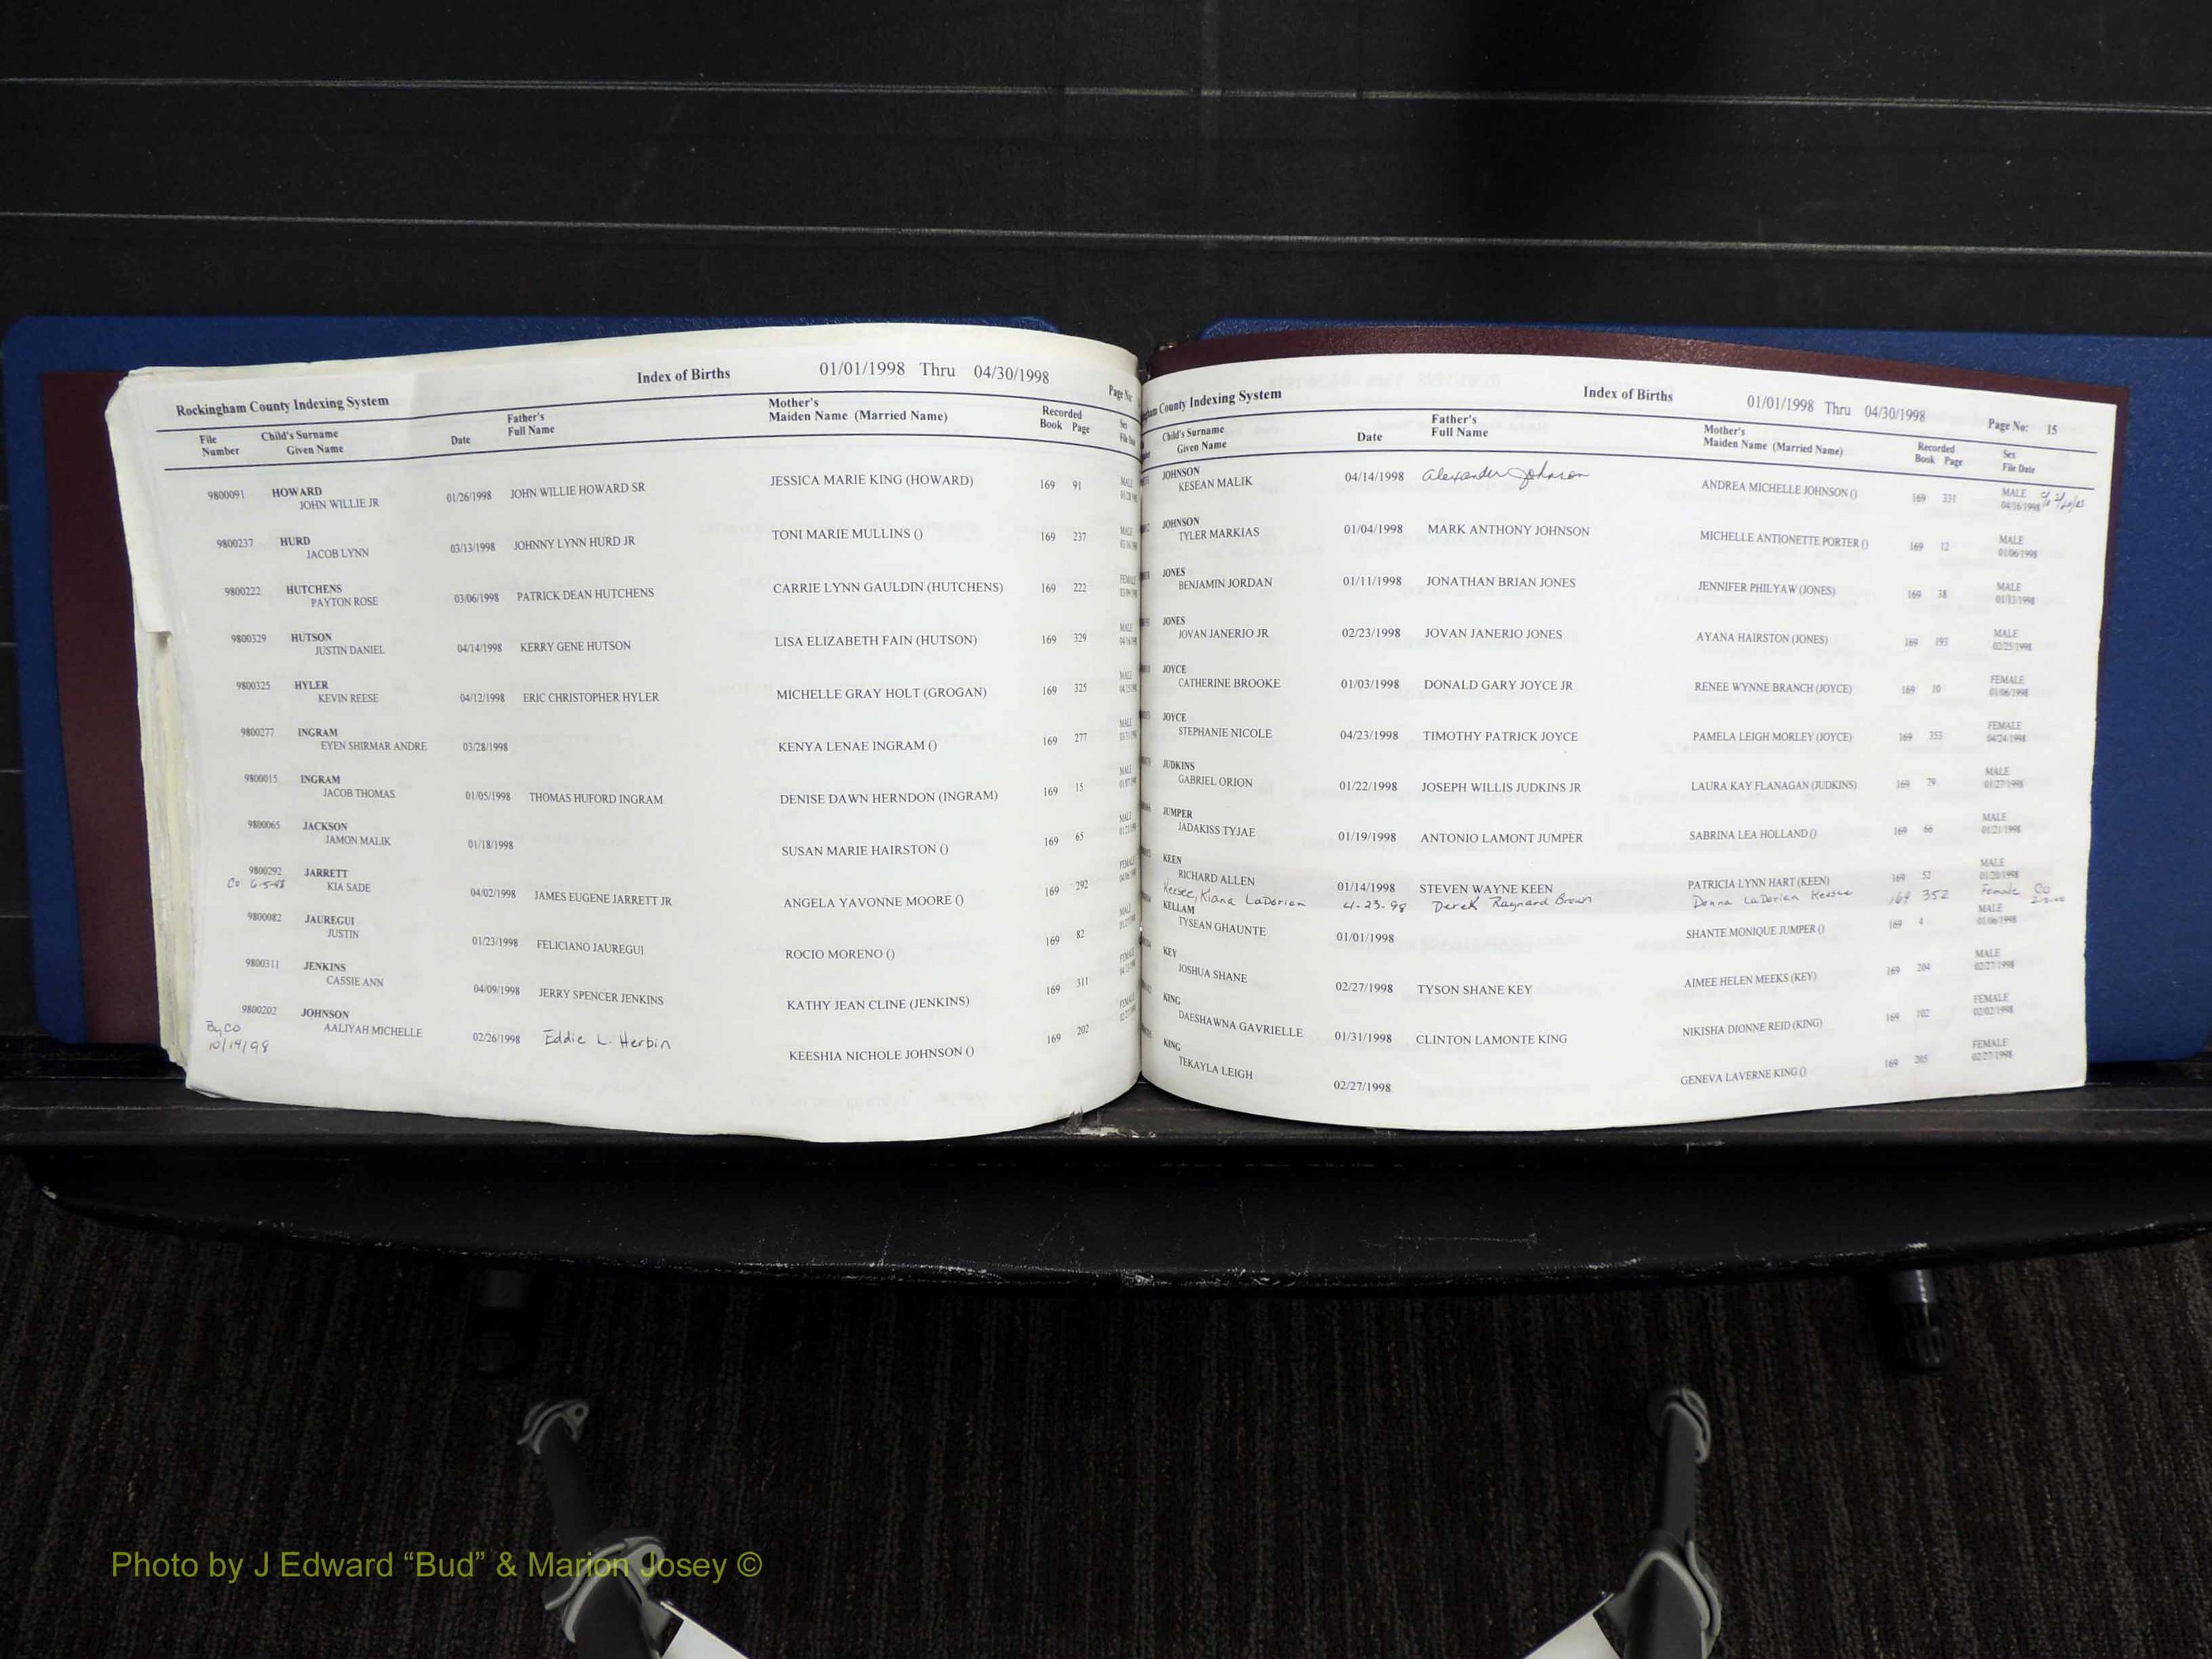 Rockingham County Indexing System Index of Births 01/01/1998 Thru 04/30/1998
File Number Child's Surname Given Name Date Father's Full Name Mother's Maiden Name (Married Name) Recorded Book Page Sex
9800091 HOWARD JESSICA MARIE KING (HOWARD) 169 91
JOHN WILLIE JR 01/26/1998 JOHN WILLIE HOWARD SR
9800237 HURD TONI MARIE MULLINS () 169 237 MALE
JACOB LYNN 03/13/1998 JOHNNY LYNN HURD JR
9800222 HUTCHENS CARRIE LYNN GAULDIN (HUTCHENS) 169 222
PAYTON ROSE 03/06/1998 PATRICK DEAN HUTCHENS
9800329 HUTSON LISA ELIZABETH FAIN (HUTSON) 169 329 MALE
JUSTIN DANIEL 04/14/1998 KERRY GENE HUTSON
9800325 HYLER MICHELLE GRAY HOLT (GROGAN) 169 325 MALE
KEVIN REESE 04/12/1998 ERIC CHRISTOPHER HYLER
9800277 INGRAM 169 277 MALE
EYEN SHIRMAR ANDRE 03/28/1998 KENYA LENAE INGRAM ()
9800015 INGRAM 169 15 MALE
JACOB THOMAS 01/05/1998 THOMAS HUFORD INGRAM DENISE DAWN HERNDON (INGRAM)
9800065 JACKSON 169 65 MALE
JAMON MALIK 01/18/1998 SUSAN MARIE HAIRSTON ()
9800292 JARRETT 169 292
Co 6-5-98 KIA SADE 04/02/1998 JAMES EUGENE JARRETT JR ANGELA YAVONNE MOORE ()
9800082 JAUREGUI 169 82
JUSTIN 01/23/1998 FELICIANO JAUREGUI ROCIO MORENO ()
9800311 JENKINS 169 311
CASSIE ANN 04/09/1998 JERRY SPENCER JENKINS KATHY JEAN CLINE (JENKINS)
9800202 JOHNSON 169 202
By CO AALIYAH MICHELLE 02/26/1998 Eddie L. Herbin KEESHIA NICHOLE JOHNSON ()
10/14/98
County Indexing System Index of Births 01/01/1998 Thru 04/30/1998 Page No: 15
Child's Surname Given Name Date Father's Full Name Mother's Maiden Name (Married Name) Recorded Book Page Sex File Date
JOHNSON 04/14/1998 Alexander Johnson ANDREA MICHELLE JOHNSON () 169 331 MALE
KESEAN MALIK 04/16/1998
JOHNSON 01/04/1998 MARK ANTHONY JOHNSON MICHELLE ANTIONETTE PORTER () 169 12 MALE
TYLER MARKIAS 01/06/1998
JONES 01/11/1998 JONATHAN BRIAN JONES JENNIFER PHILYAW (JONES) 169 38 MALE
BENJAMIN JORDAN 01/13/1998
JONES 02/23/1998 JOVAN JANERIO JONES AYANA HAIRSTON (JONES) 169 193 MALE
JOVAN JANERIO JR 02/25/1998
JOYCE 01/03/1998 DONALD GARY JOYCE JR RENEE WYNNE BRANCH (JOYCE) 169 10 FEMALE
CATHERINE BROOKE 01/06/1998
JOYCE 04/23/1998 TIMOTHY PATRICK JOYCE PAMELA LEIGH MORLEY (JOYCE) 169 353 FEMALE
STEPHANIE NICOLE 04/24/1998
JUDKINS 01/22/1998 JOSEPH WILLIS JUDKINS JR LAURA KAY FLANAGAN (JUDKINS) 169 79 MALE
GABRIEL ORION 01/27/1998
JUMPER 01/19/1998 ANTONIO LAMONT JUMPER SABRINA LEA HOLLAND () 169 66 MALE
JADAKISS TYJAE 01/21/1998
KEEN 169 52 MALE
RICHARD ALLEN 01/14/1998 STEVEN WAYNE KEEN PATRICIA LYNN HART (KEEN) 01/20/1998
Keesee, Kiana LaDorian 4-23-98 Derek Raynard Brown Donna LaDorian Keesee 169 352 Female Co
KELLAM 169 4 MALE
TYSEAN GHAUNTE 01/01/1998 SHANTE MONIQUE JUMPER () 01/06/1998
KEY 169 204 MALE
JOSHUA SHANE 02/27/1998 TYSON SHANE KEY AIMEE HELEN MEEKS (KEY) 02/27/1998
KING 169 102 FEMALE
DAESHAWNA GAVRIELLE 01/31/1998 CLINTON LAMONTE KING NIKISHA DIONNE REID (KING) 02/02/1998
KING 169 205 FEMALE
TEKAYLA LEIGH 02/27/1998 GENEVA LAVERNE KING () 02/27/1998
Photo by J Edward “Bud” & Marion Josey ©